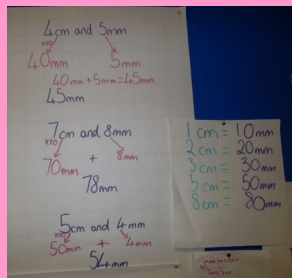 4cm and 5mm
x10
40mm 5mm
40mm + 5mm = 45mm
45mm
7cm and 8mm
x10
70mm + 8mm
78mm
5cm and 4mm
x10
50mm + 4mm
54mm
1cm = 10mm
2cm = 20mm
3cm = 30mm
5cm = 50mm
8cm = 80mm